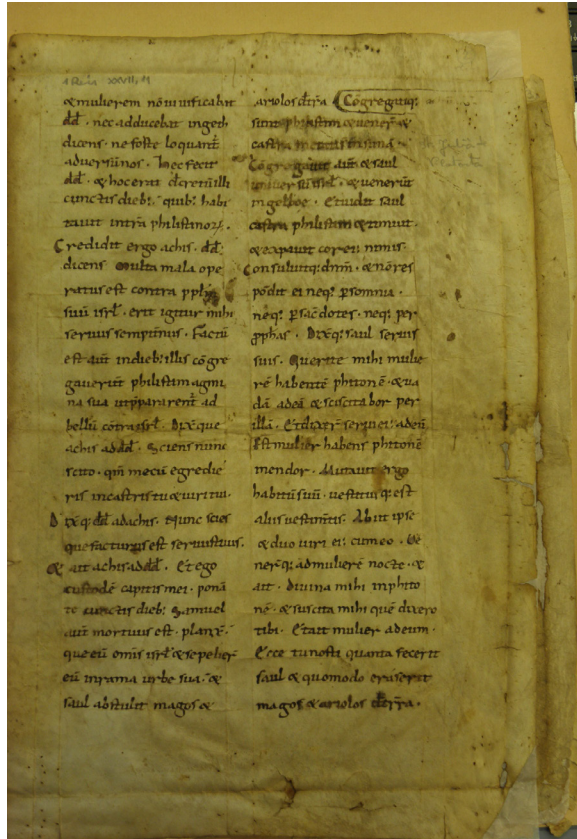 1 Reg XXVII, 11
& mulierem n̄ uiuificabat
dd̄ . nec adducebat in geth
dicens . ne forte loquant̄
aduersū nos . Hec fecit
dd̄ . & hoc erat dcretū illi
cunctis dieb; . quib; habi
tauit intra philistinoꝝ .
Credidit ergo achis . dd̄ .
dicens multa mala ope
ratus est contra pplm̄
suū isrl̄ . erit igitur mihi
seruus sempitnus . Factū
est aūt in dieb; illis cōgre
gauerūt philistim agmi
na sua ut p̄pararent̄ ad
bellū cōtra isrl̄ . Dix̄ que
achis ad dd̄ . Sciens nunc
scito . qm̄ mecū egredie
ris in castris tu & uiri tui .
Dix̄ q; dd̄ ad achis . Nunc scies
que facturus est seruus tuus .
& ait achis ad dd̄ . Et ego
custodē capitis mei . ponā
te cunctis dieb; Samuel
aūt mortuus est . planx̄
que eū om̄is isrl̄ & sepelier̄
eū in rama urbe sua . &
saul abstulit magos &
ariolos d̄ t̄ra Cōgregatiq;
sunt philistim & uener̄ &
castra metati s̄ in suna
Congregauit aūt & saul
uniuersū isrl̄ . & uenerūt
in gelboe . Et uidit saul
castra philistim & timuit .
& expauit cor ei; nimis .
Consuluitq; dnm̄ . & nō res
pōdit ei neq; p̄ somnia .
neq; p̄ sacdotes . neq; per
p̄phas . Dix̄q; saul seruis
suis . Querite mihi mulie
rē habentē phitonē . & ua
dā ad eā & suscitabor per
illā . Et dixer̄ serui ei; ad eū
Est mulier habens phitonē
in endor . Mutauit ergo
habitū suū . uestitusq; est
aliis uestimtis . Abiit ipse
& duo uiri ei; cum eo . Ue
ner̄q; ad mulierē nocte . &
ait . Diuina mihi in phito
nē . & suscita mihi quē dixero
tibi . Et ait mulier ad eum .
Ecce tu nosti quanta fecerit
saul & quomodo eraserit
magos & ariolos d̄ t̄ra .